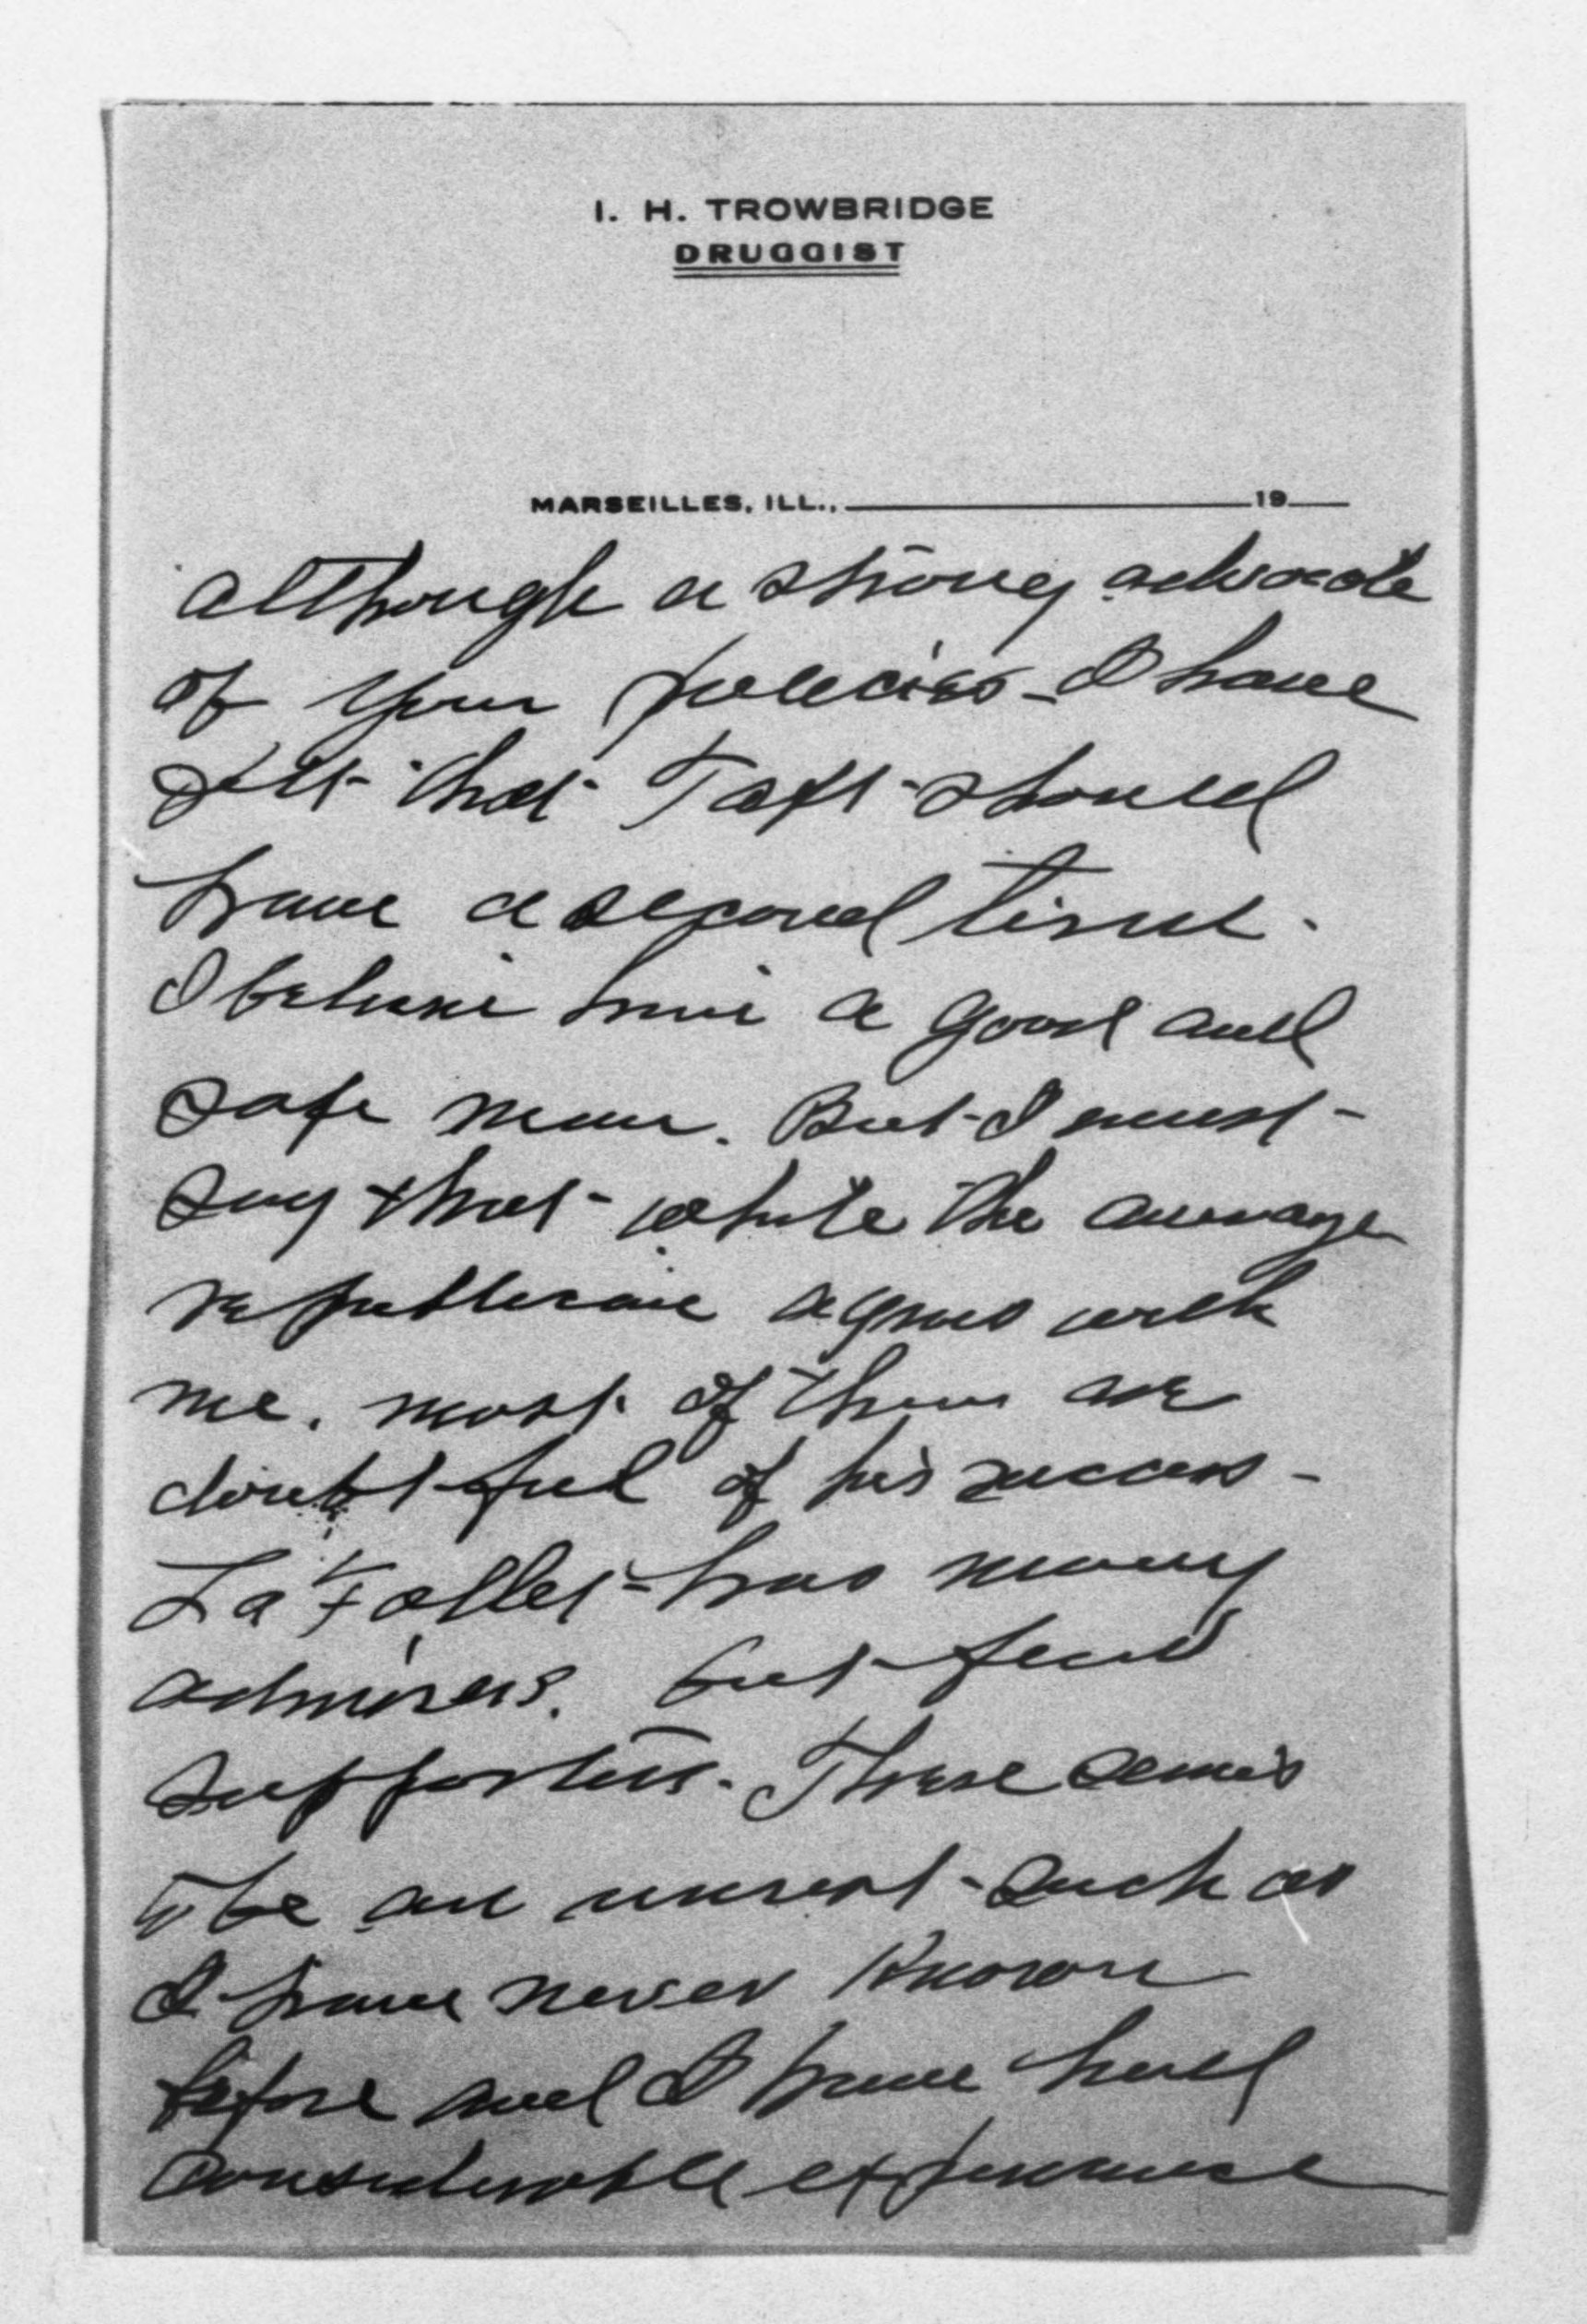 I. H. TROWBRIDGE
DRUGGIST
MARSEILLES, ILL., 19
although a strong advocate
of your policies - I have
felt that Taft should
have a second time.
I believe him a good and
safe man. But I must
say that while the average
republican agrees with
me. most of them are
doubtful of his success -
La Follet has many
admirers. but few
supporters. There seems
to be an unrest such as
I have never known
before and I have had
considerable experience